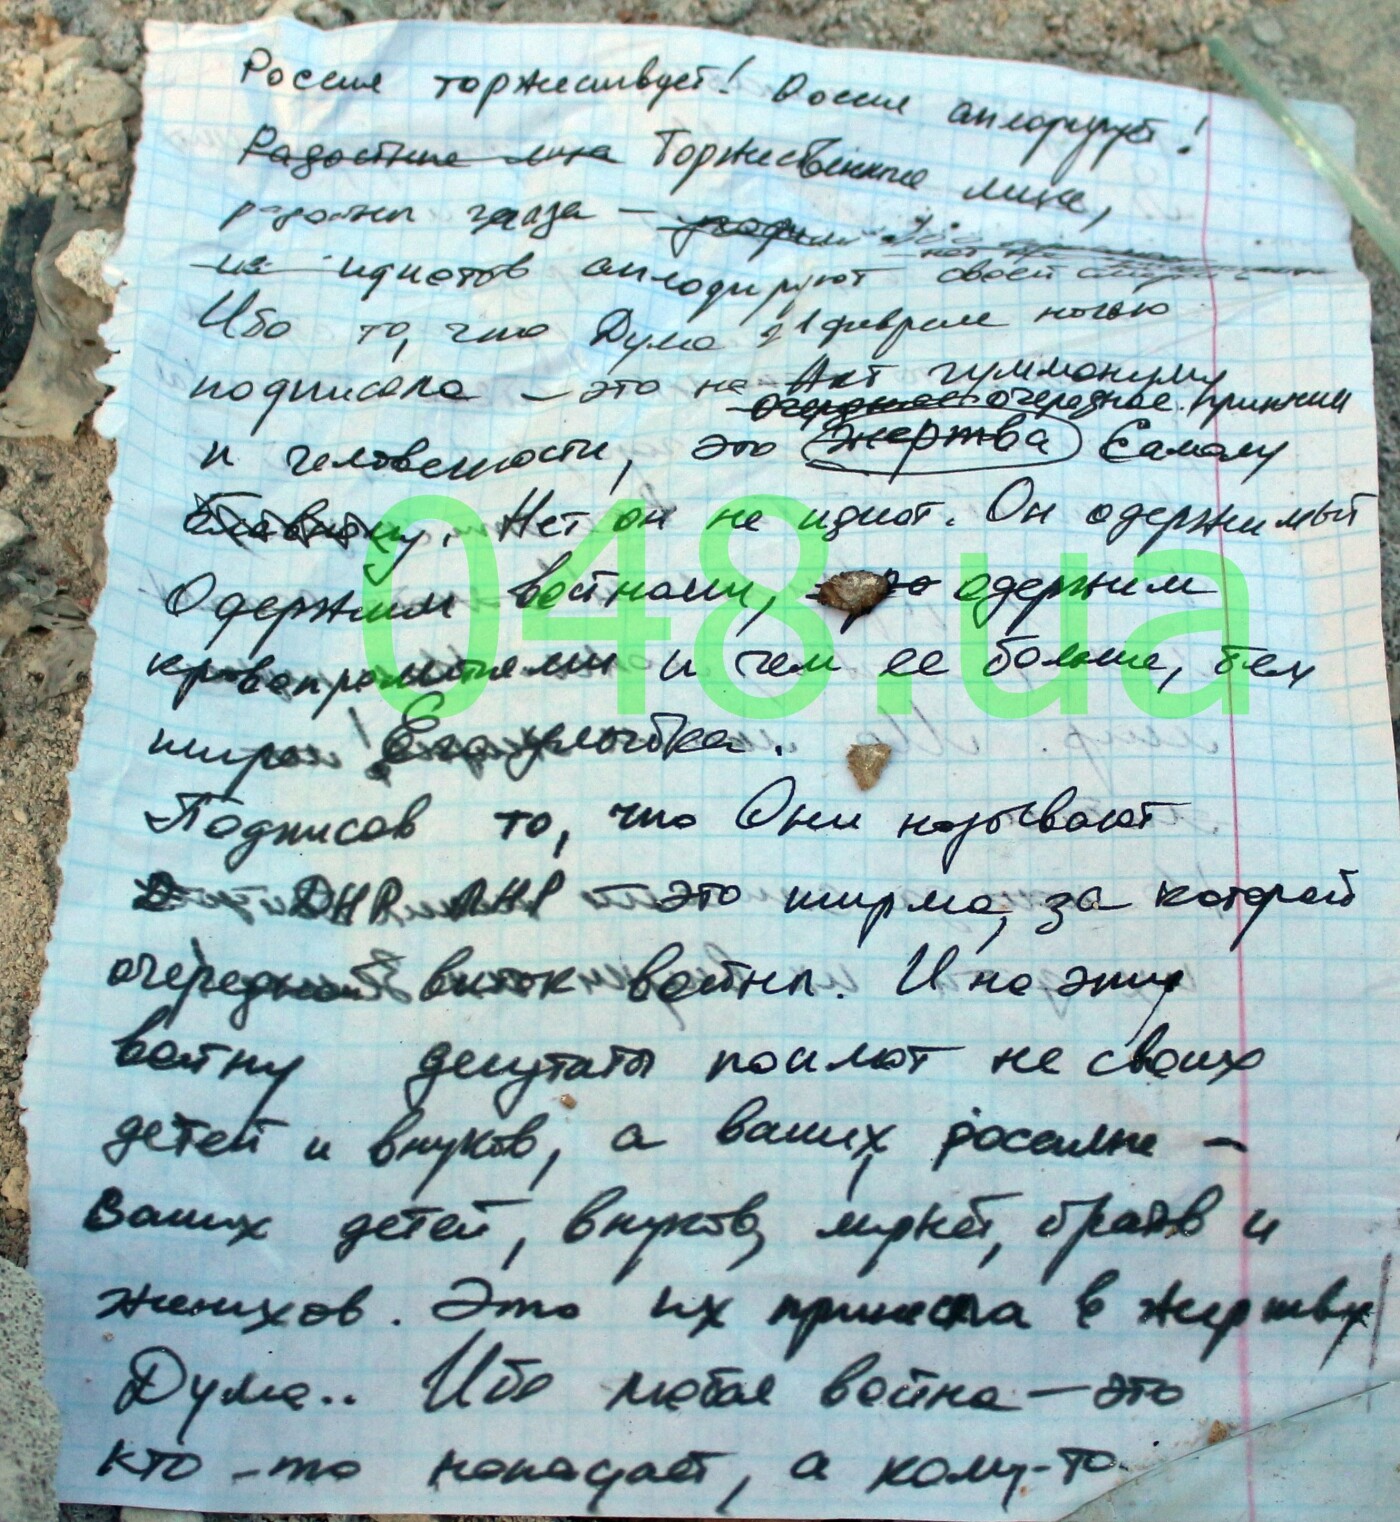 Россия торжествует! Россия аплодирует!
Радостные лица Торжественные лица,
радостны глаза —
из идиотов аплодируют своей
Ибо то, что Дума 21 февраля ночью
подписала — это не Акт гуммонизму
очередное очередное
и человечности, это жертва Самому
Нет он не идиот. Он одержимый
Одержим войнами, одержим
кровопролитием и чем ее больше, тем
шире! Его улыбка.
Подписав то, что Они называют
ДНР и ЛНР — это ширма, за которой
очередной виток войны. И на эту
войну депутаты пошлют не своих
детей и внуков, а ваших, россияне —
Ваших детей, внуков, мужей, братов и
женихов. Это их принесла в жертву
Дума.. Ибо любая война — это
кто-то нападает, а кому-то
048.ua